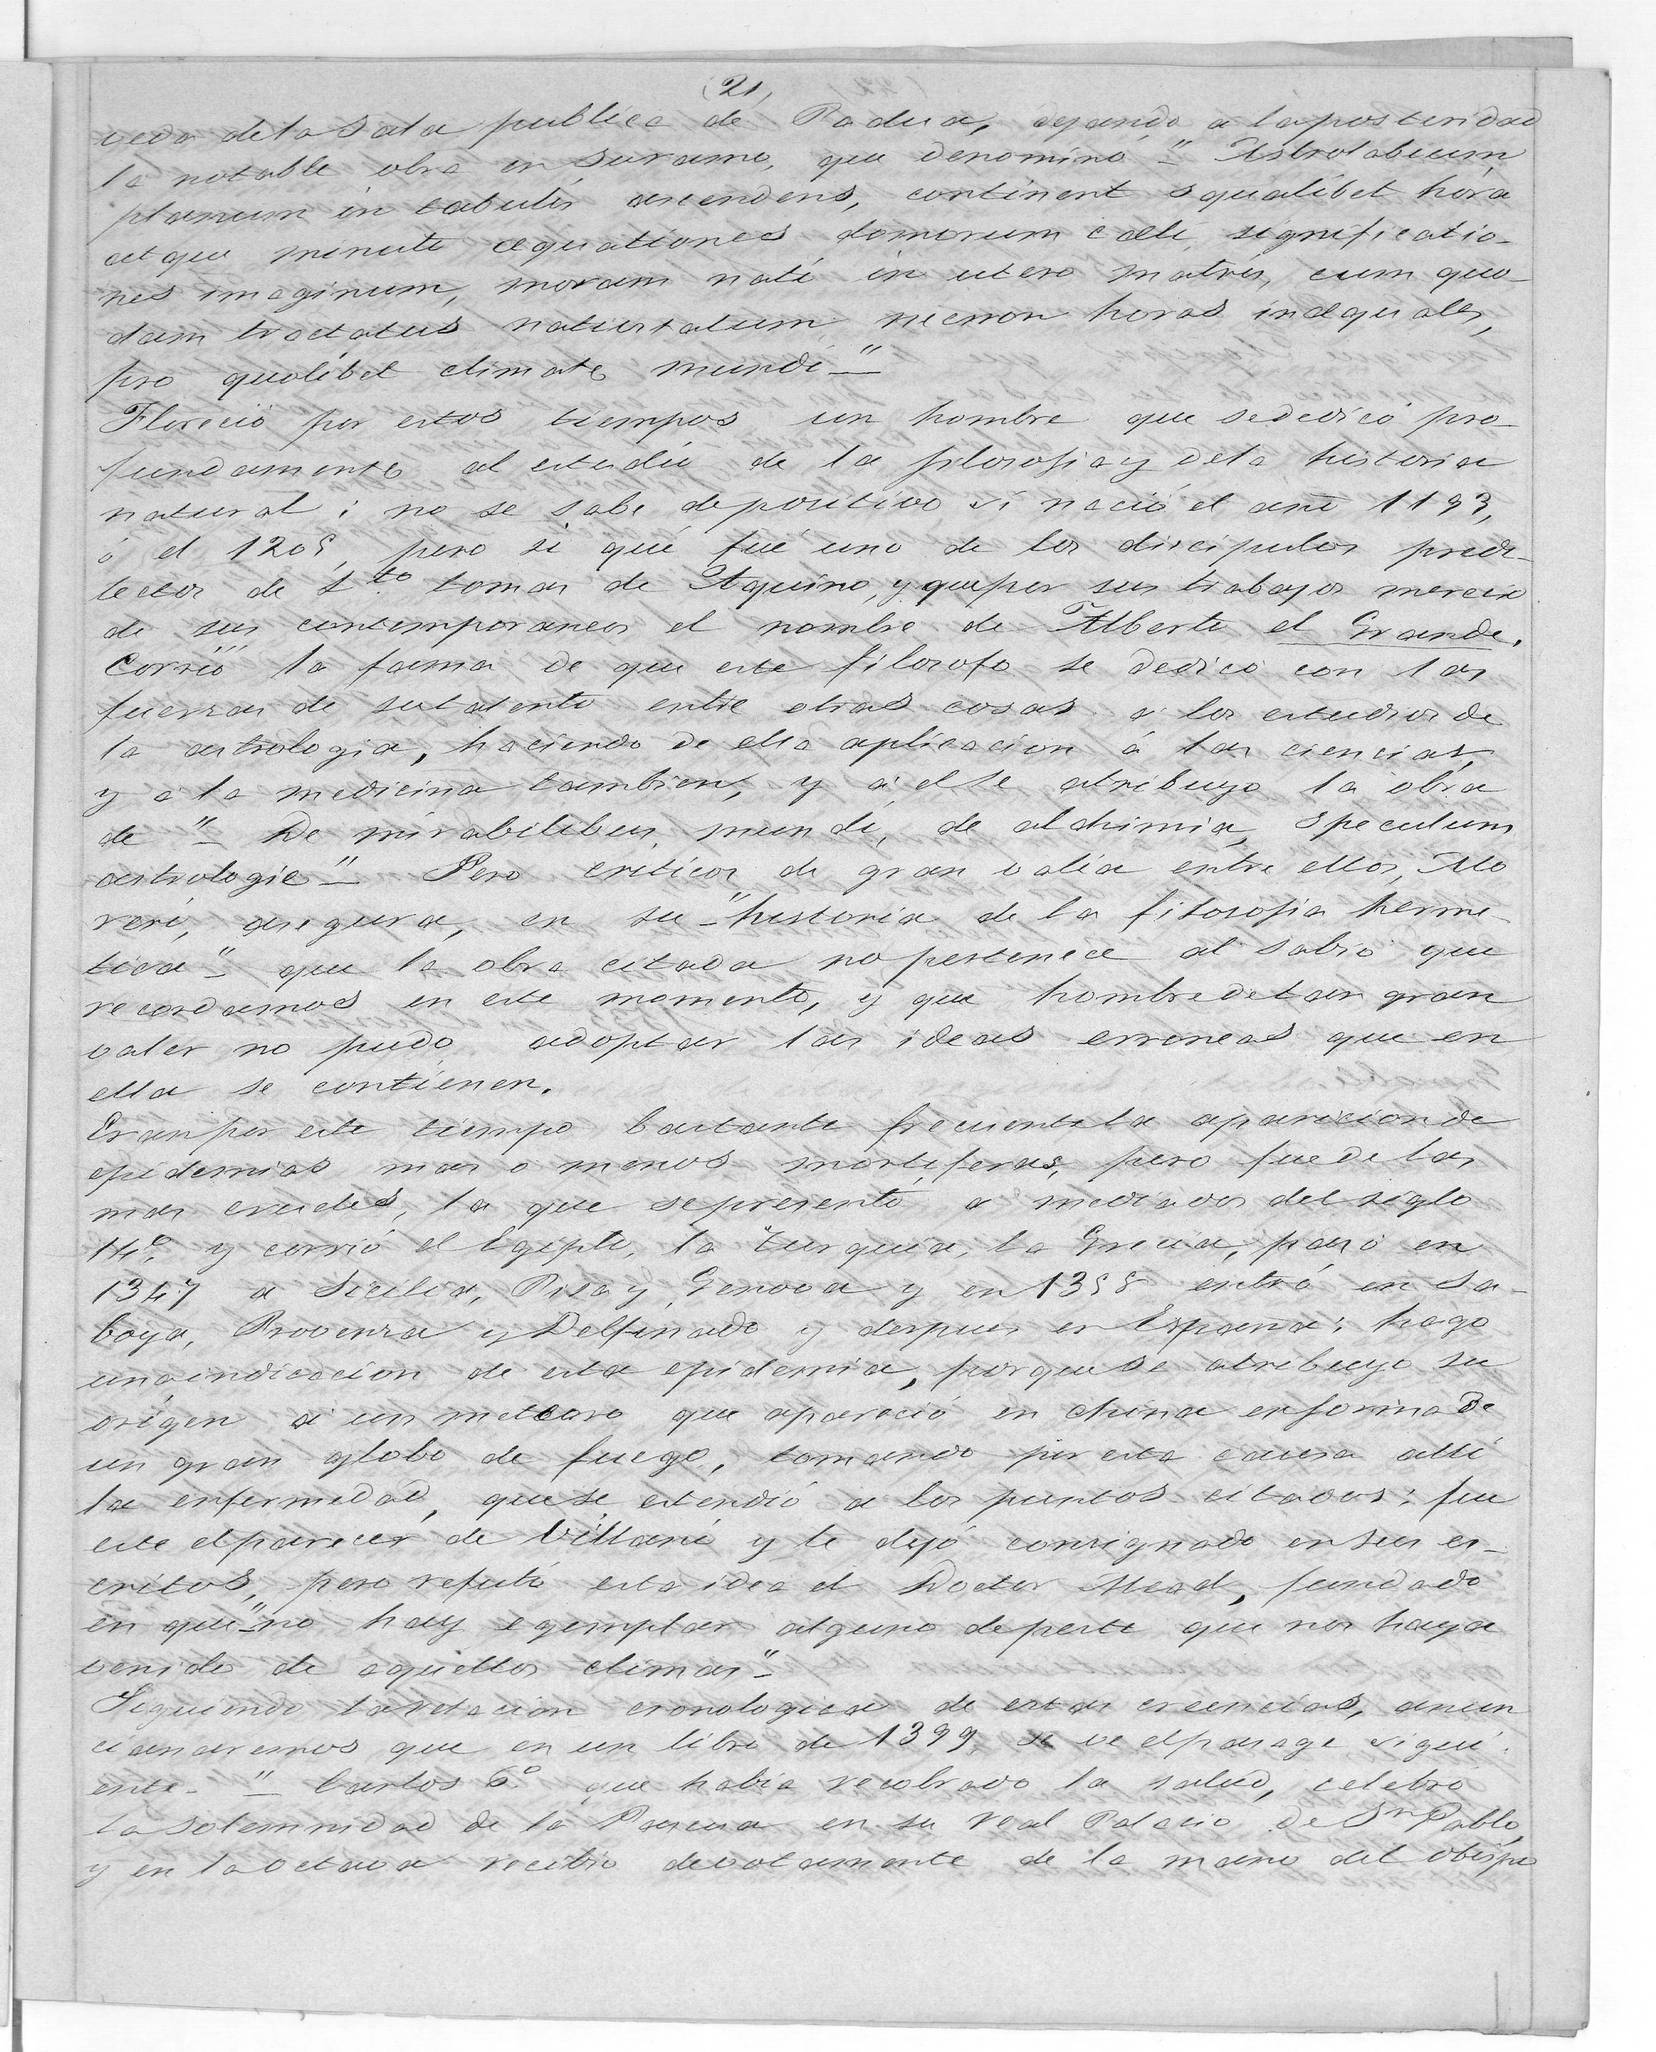 (21)
veda dela sala publica de Padua, dejando a la posteridad
la notable obra en su ramo, que denominó "Astrolabium
planum in tabulis ascendens, continent s qualibet hora
atque minuti aequationes domorum caeli significatio-
nes imaginum, moram nati in utero matris, cum quo-
dam tractatus nativitatum necnon horas inaequales,
pro quolibet climate mundi"
Floreció por estos tiempos un hombre que se dedicó pro-
fundamente al estudio de la filosofia y dela historia
natural; no se sabe de positivo si nació el año 1193,
ó el 1205, pero si que fué uno de los discipulos predi-
lectos de Sto. tomas de Aquino, y que por sus trabajos mereció
de sus contemporaneos el nombre de Alberto el Grande.
Corrió la fama de que este filosofo se dedicó con las
fuerzas de su talento entre otras cosas a los estudios de
la astrologia, haciendo de ella aplicacion á las ciencias,
y a la medicina tambien, y á el se atribuyo la obra
de "De mirabilibus mundi, de alchimia, Speculum
astrologie" Pero criticos de gran valia entre ellos, Mo
reri, asegura, en su "historia de la filosofia herme-
tica" que la obra citada no pertenece al sabio que
recordamos en este momento, y que hombre de tan gran
valer no pudo adoptar las ideas erroneas que en
ella se contienen.
Eran por este tiempo bastante frecuente la aparicion de
epidemias mas o menos mortiferas, pero fue de las
mas crueles, la que se presentó a mediados del siglo
14º y corrió el Egipto, la Turquia, la Grecia, pasó en
1347 a Sicilia, Pisa y Genova y en 1358 entró en Sa-
boya, Provenza y Delfinado y despues en España: hago
una indicacion de esta epidemia, porque se atribuyo su
origen á un meteoro que apareció en China en forma de
un gran globo de fuego, tomando por esta causa alli
la enfermedad, que se estendió a los puntos citados: fue
este el parecer de Villani y le dejó consignado en sus es-
critos, pero refutó esta idea el Doctor Mead, fundado
en que "no hay egemplar alguno de peste que nos haya
venido de aquellos climas"
Siguiendo la relacion cronologica de estas creencias, anun
ciaremos que en un libro de 1399 se ve el pasage sigui-
ente. "Carlos 6º que habia recobrado la salud, celebró
la solemnidad de la Pascua en su real Palacio de Sn Pablo,
y en la octava recibio devotamente de la mano del obispo